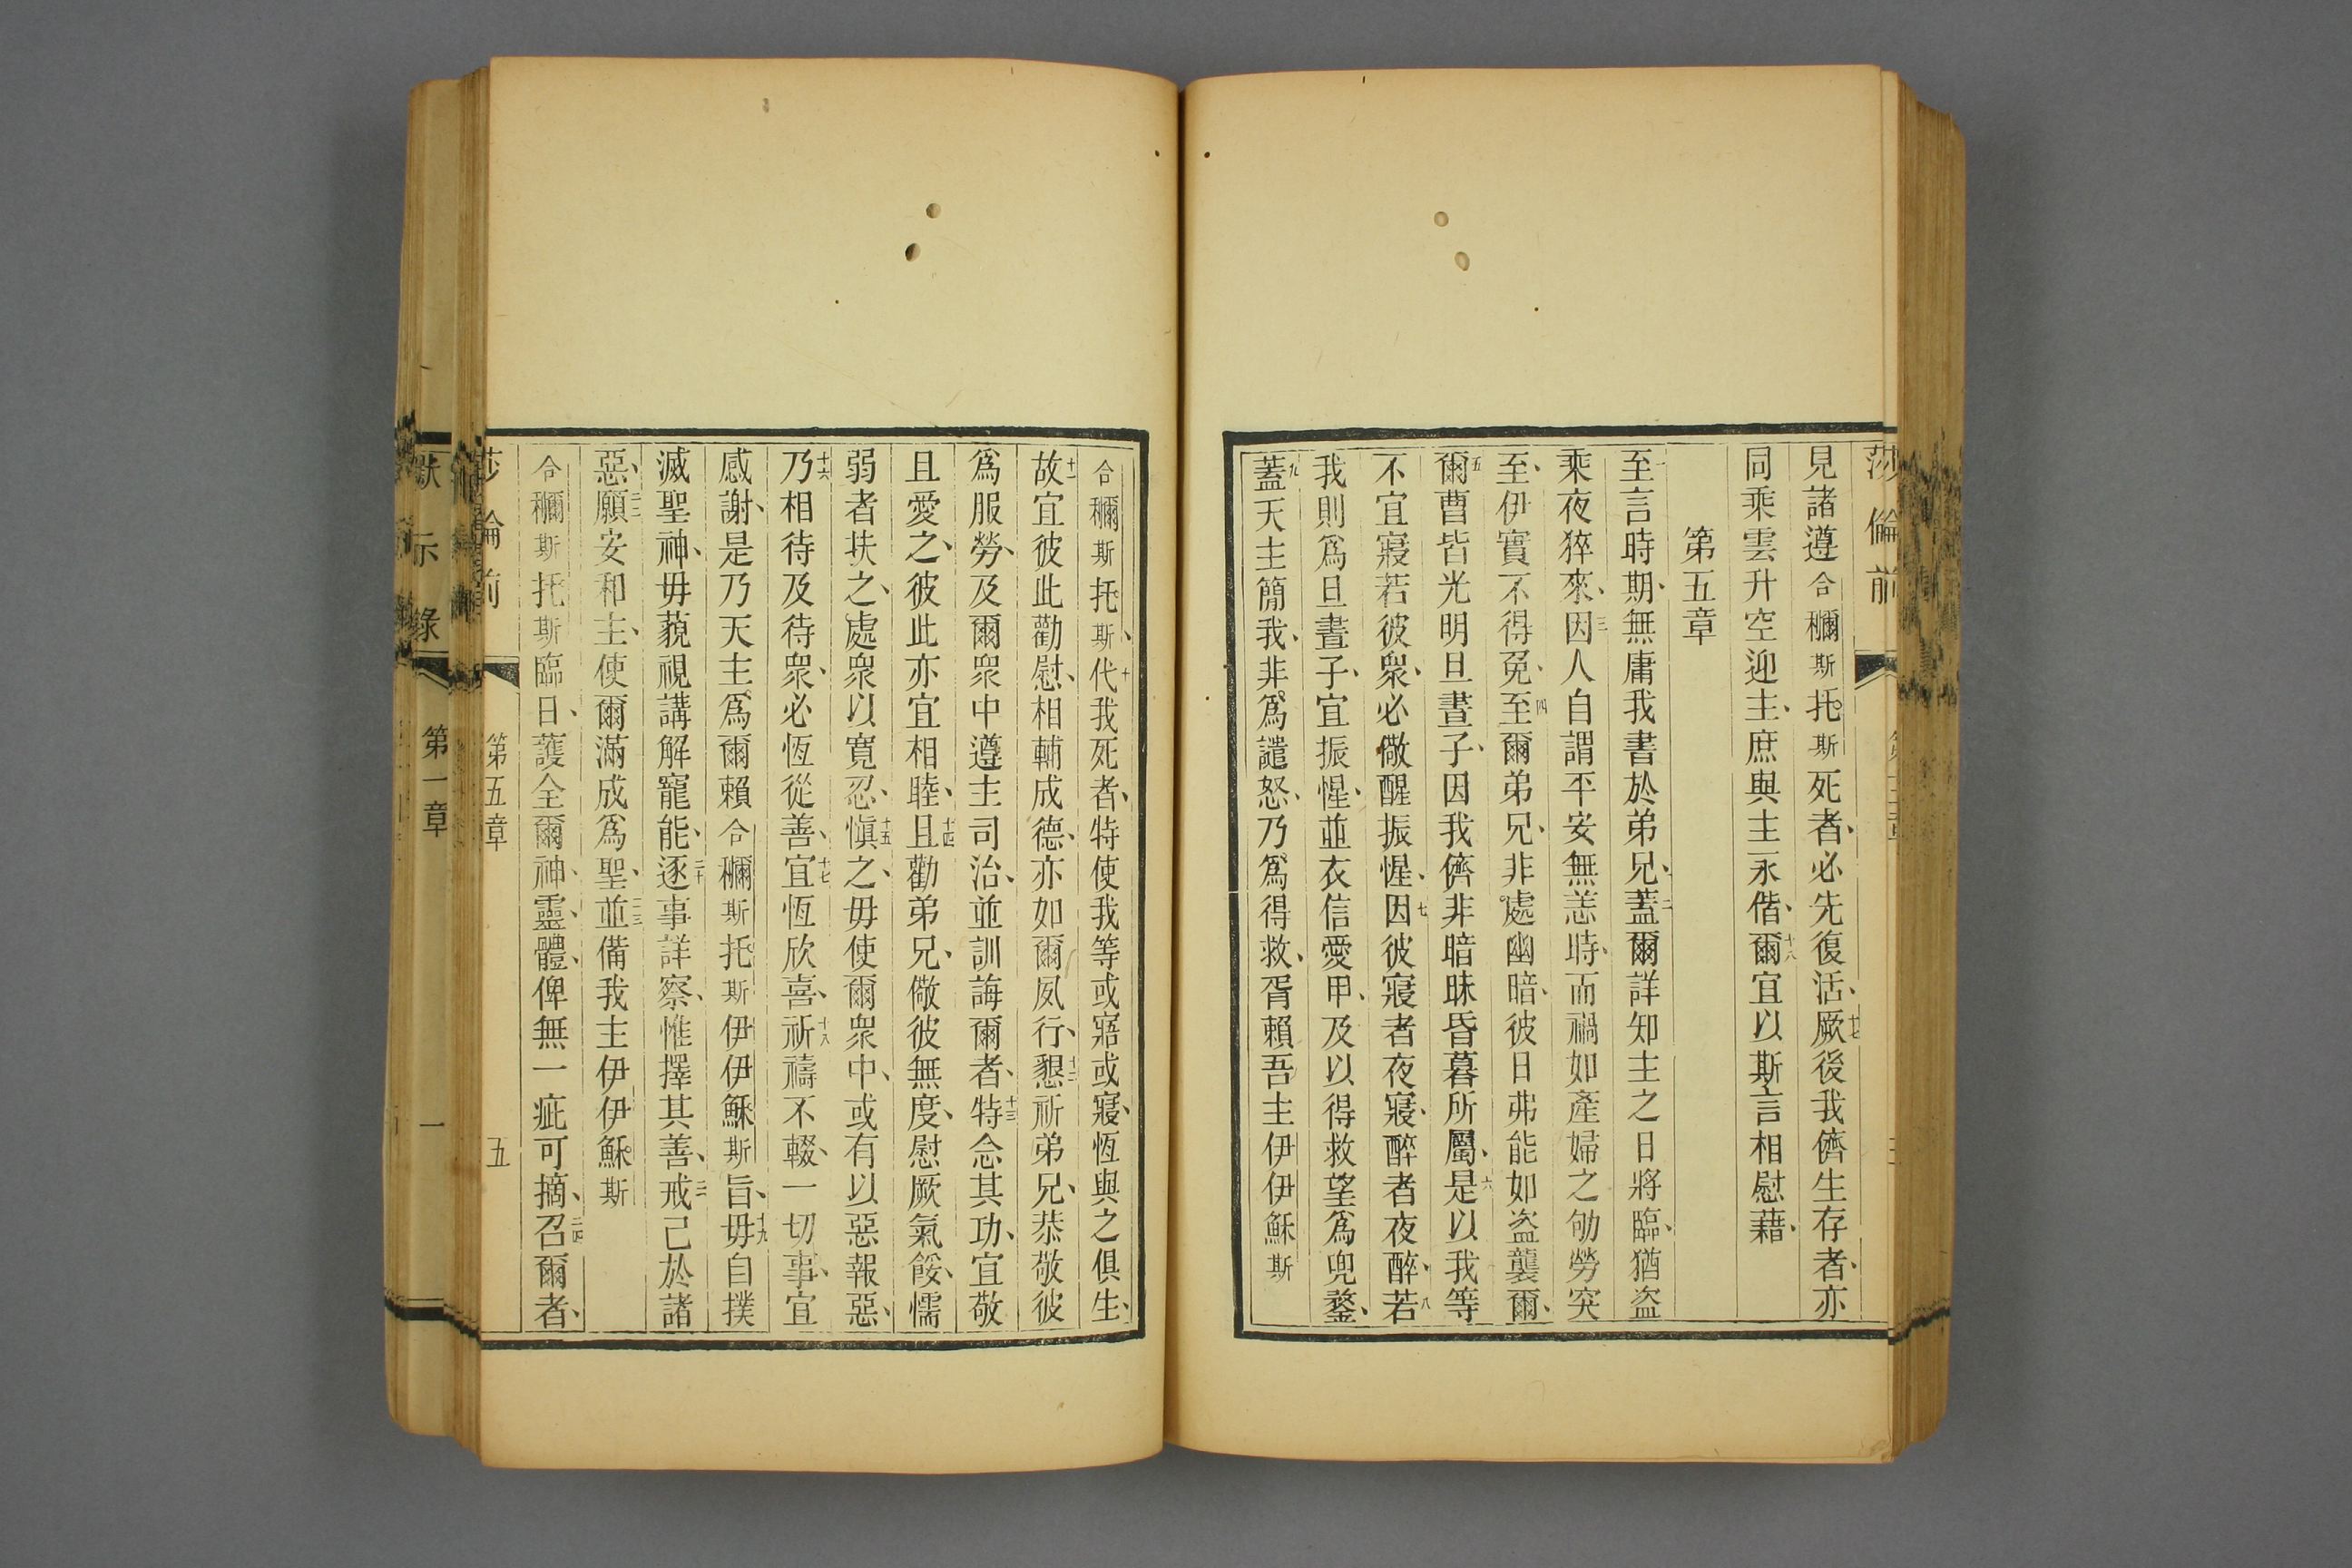 莎倫前
見諸遵合穪斯托斯死者、必先復活、廿七厥後我儕生存者、亦
同乘雲升空迎主、庶與主永偕、十八爾宜以斯言相慰藉、
第五章
一至言時期、無庸我書於弟兄、二蓋爾詳知主之日將臨、猶盜
乘夜猝來、三因人自謂平安無恙時、而禍如產婦之劬勞突
至、伊實不得免、四至爾弟兄、非處幽暗、彼日弗能如盜襲爾、
五爾曹皆光明旦晝子、因我儕非暗昧昏暮所屬、六是以我等
不宜寢若彼衆、必儆醒振惺、七因彼寢者夜寢、醉者夜醉、八若
我則爲旦晝子、宜振惺、並衣信愛甲、及以得救望爲兜鍪、
九蓋天主簡我、非爲譴怒、乃爲得救、胥賴吾主伊伊穌斯
合穪斯托斯、十代我死者、特使我等或寤或寢、恆與之俱生、
十一故宜彼此勸慰、相輔成德、亦如爾夙行、十二懇祈弟兄、恭敬彼
爲服勞、及爾衆中遵主司治、並訓誨爾者、十三特念其功、宜敬
且愛之、彼此亦宜相睦、十四且勸弟兄、儆彼無度、慰厥氣餒、懦
弱者扶之、處衆以寬忍、十五愼之、毋使爾衆中、或有以惡報惡、
十六乃相待及待衆、必恆從善、十七宜恆欣喜、十八祈禱不輟、一切事、宜
感謝、是乃天主爲爾賴合穪斯托斯伊伊穌斯旨、十九毋自撲
滅聖神、毋藐視講解寵能、二十逐事詳察、惟擇其善、二一戒己於諸
惡、二二願安和主、使爾滿成爲聖、二三並備我主伊伊穌斯
合穪斯托斯臨日、護全爾神、靈、體、俾無一疵可摘、二四召爾者、
莎倫前
第五章
五
默示錄
第一章
一